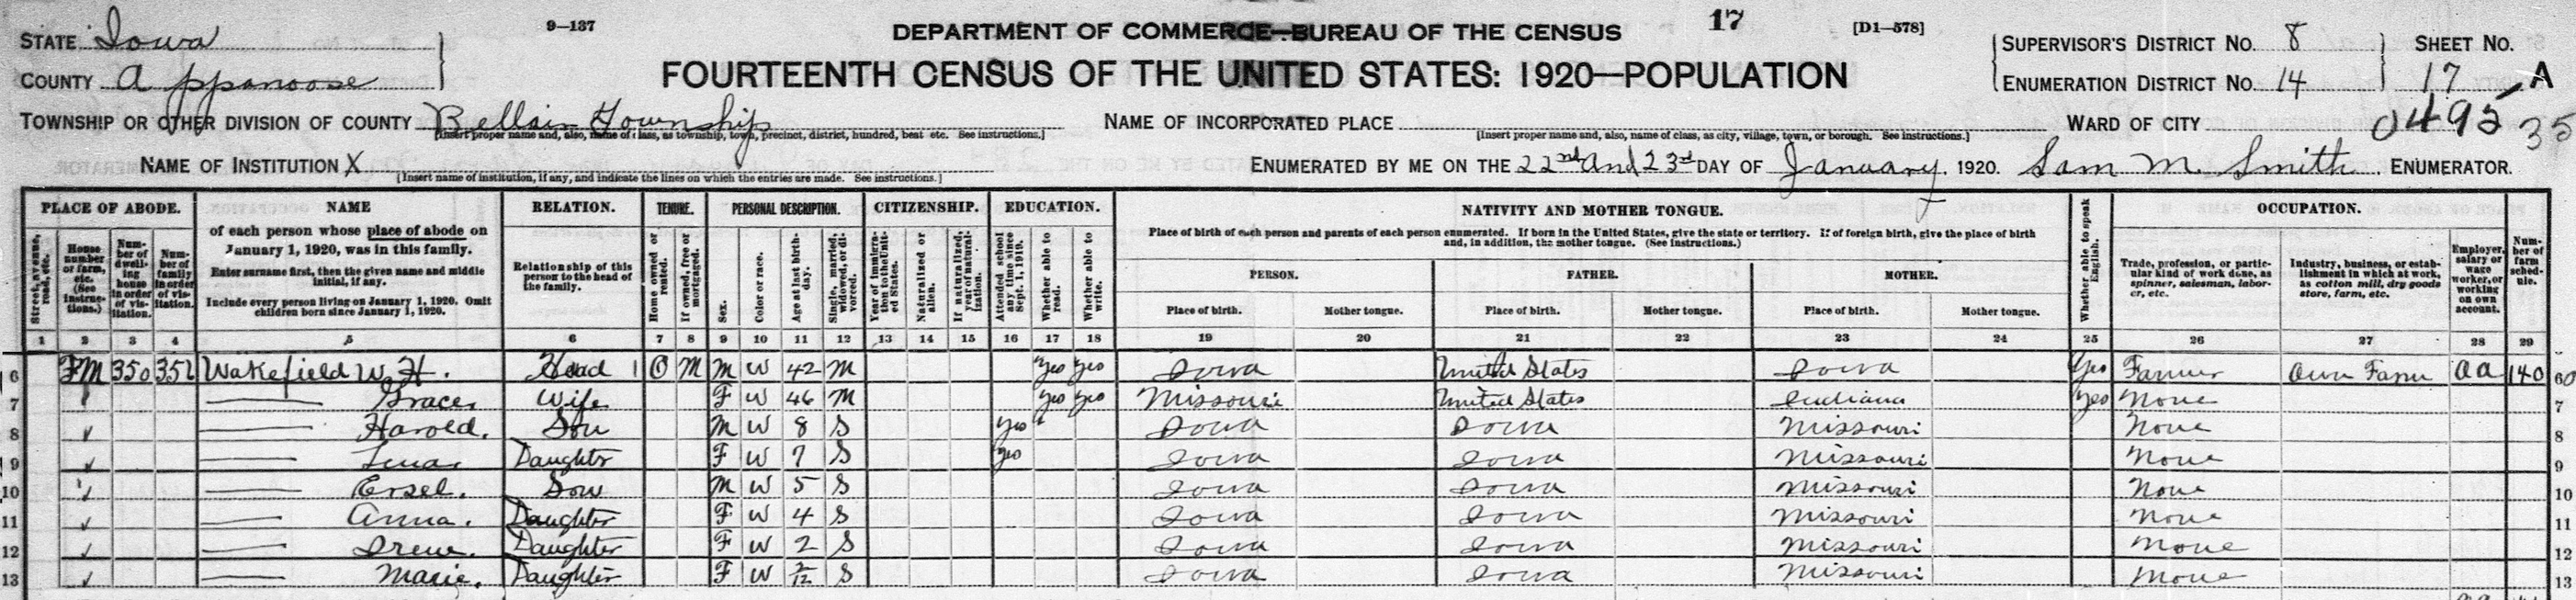 9—137
DEPARTMENT OF COMMERCE—BUREAU OF THE CENSUS
17
[D1—578]
STATE Iowa
COUNTY Appanoose
FOURTEENTH CENSUS OF THE UNITED STATES: 1920—POPULATION
SUPERVISOR'S DISTRICT No. 8
ENUMERATION DISTRICT No. 14
SHEET No.
17 A
TOWNSHIP OR OTHER DIVISION OF COUNTY Bellair Township
[Insert proper name and, also, name of class, as township, town, precinct, district, hundred, beat etc. See instructions.]
NAME OF INCORPORATED PLACE
[Insert proper name and, also, name of class, as city, village, town, or borough. See instructions.]
WARD OF CITY
0495
35
NAME OF INSTITUTION X
[Insert name of institution, if any, and indicate the lines on which the entries are made. See instructions.]
ENUMERATED BY ME ON THE 22nd and 23rd DAY OF January, 1920. Sam M. Smith ENUMERATOR.
PLACE OF ABODE.
Street, avenue, road, etc.
House number or farm, etc. (See instructions.)
Number of dwelling house in order of visitation.
Number of family in order of visitation.
NAME
of each person whose place of abode on
January 1, 1920, was in this family.
Enter surname first, then the given name and middle
initial, if any.
Include every person living on January 1, 1920. Omit
children born since January 1, 1920.
RELATION.
Relationship of this
person to the head of
the family.
TENURE.
Home owned or rented.
If owned, free or mortgaged.
PERSONAL DESCRIPTION.
Sex.
Color or race.
Age at last birthday.
Single, married, widowed, or divorced.
CITIZENSHIP.
Year of immigration to the United States.
Naturalized or alien.
If naturalized, year of naturalization.
EDUCATION.
Attended school any time since Sept. 1, 1919.
Whether able to read.
Whether able to write.
NATIVITY AND MOTHER TONGUE.
Place of birth of each person and parents of each person enumerated. If born in the United States, give the state or territory. If of foreign birth, give the place of birth
and, in addition, the mother tongue. (See instructions.)
PERSON.
Place of birth.
Mother tongue.
FATHER.
Place of birth.
Mother tongue.
MOTHER.
Place of birth.
Mother tongue.
Whether able to speak English.
OCCUPATION.
Trade, profession, or particular kind of work done, as spinner, salesman, laborer, etc.
Industry, business, or establishment in which at work, as cotton mill, dry goods store, farm, etc.
Employer, salary or wage worker, or working on own account.
Number of farm schedule.
1 2 3 4 5 6 7 8 9 10 11 12 13 14 15 16 17 18 19 20 21 22 23 24 25 26 27 28 29
6 FM 350 352 Wakefield W. H. Head 1 O M M W 42 M Yes Yes Iowa United States Iowa Yes Farmer Own Farm OA 140 60
7 Grace, Wife F W 46 M Yes Yes Missouri United States Indiana Yes None 7
8 Harold. Son M W 8 S Yes Iowa Iowa Missouri None 8
9 Daughter F W 7 S Yes Iowa Iowa Missouri None 9
10 Ersel. Son M W 5 S Iowa Iowa Missouri None 10
11 Anna. Daughter F W 4 S Iowa Iowa Missouri None 11
12 Irene. Daughter F W 2 S Iowa Iowa Missouri None 12
13 Marie. Daughter F W S Iowa Iowa Missouri None 13